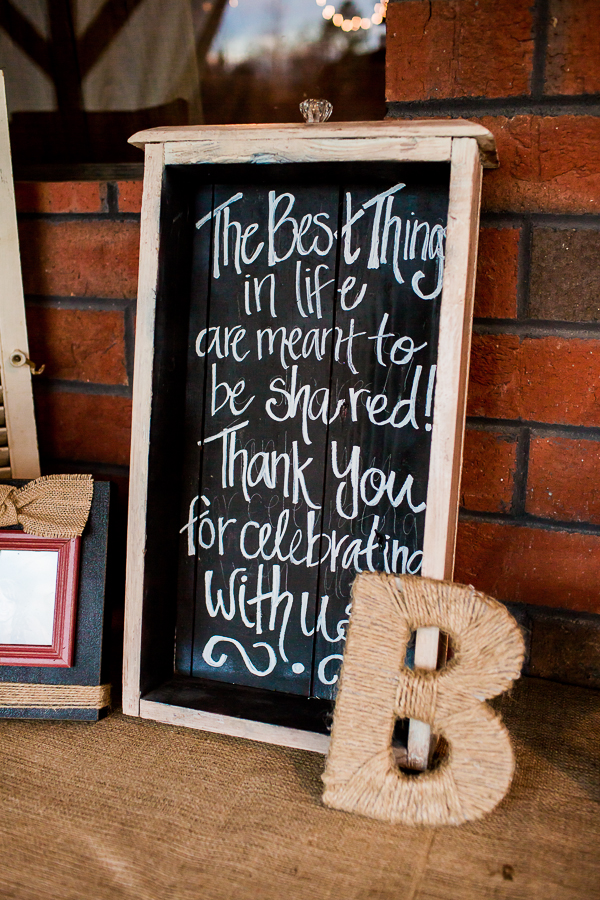 The Best Thing
in life
are meant to
be shared!
Thank You
for celebrating
with us
B